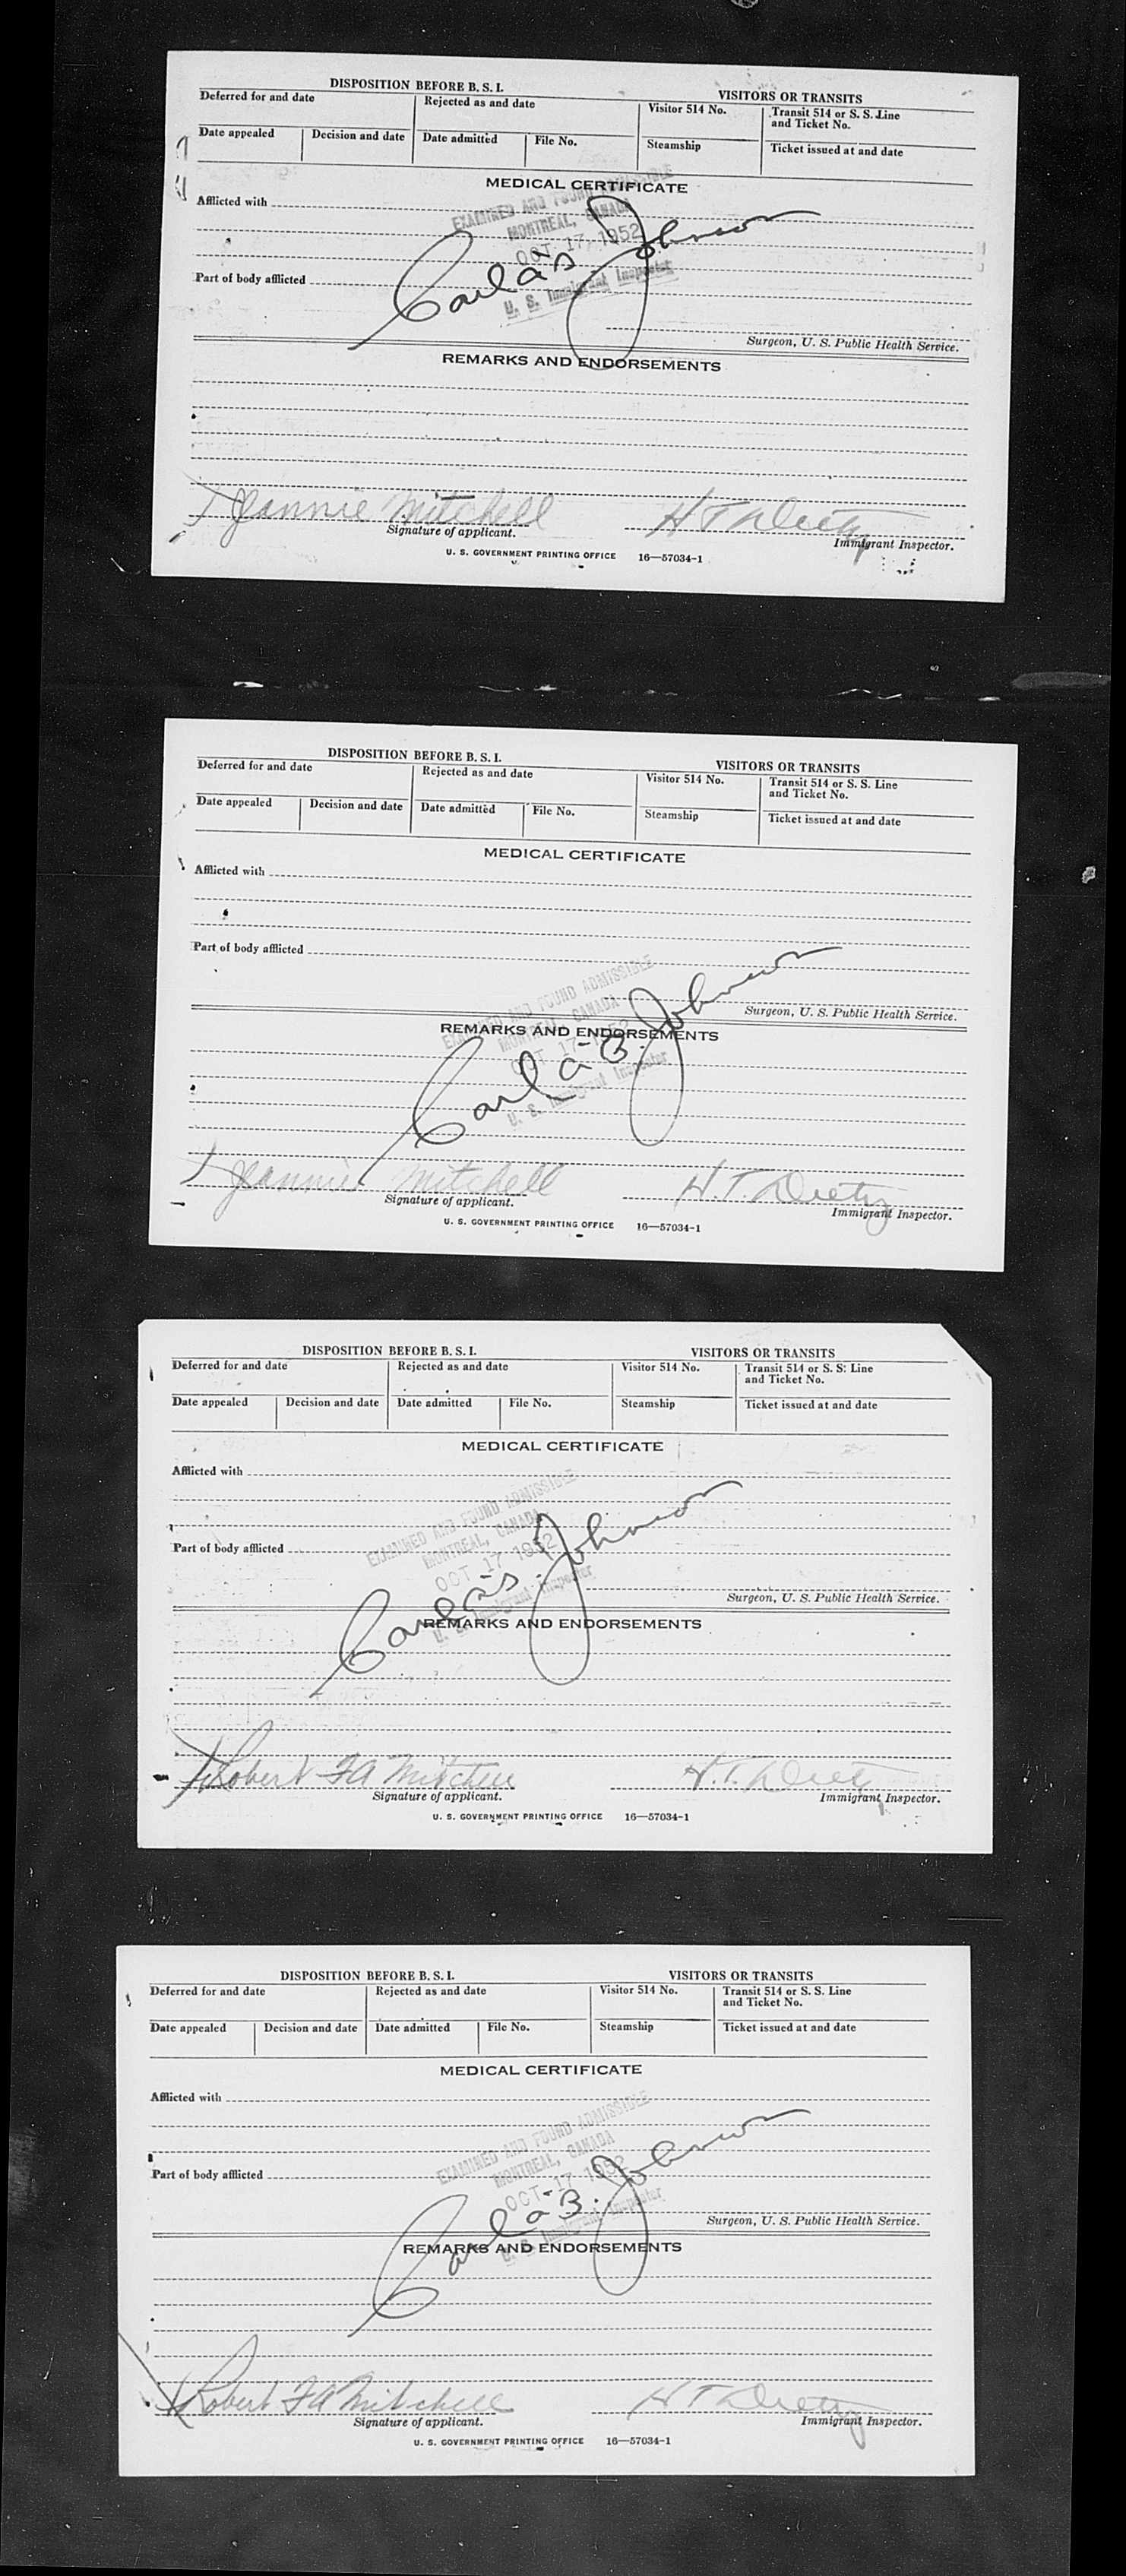 DISPOSITION BEFORE B. S. I. VISITORS OR TRANSITS
Deferred for and date Rejected as and date Visitor 514 No. Transit 514 or S. S. Line and Ticket No.
Date appealed Decision and date Date admitted File No. Steamship Ticket issued at and date
MEDICAL CERTIFICATE
Afflicted with
EXAMINED AND FOUND ADMISSIBLE
MONTREAL, CANADA
OCT 17, 1952
Johnson
Part of body afflicted
U. S. Immigrant Inspector
Surgeon, U. S. Public Health Service.
REMARKS AND ENDORSEMENTS
Jeannie Mitchell
Signature of applicant. Immigrant Inspector.
U. S. GOVERNMENT PRINTING OFFICE 16—57034-1
DISPOSITION BEFORE B. S. I. VISITORS OR TRANSITS
Deferred for and date Rejected as and date Visitor 514 No. Transit 514 or S. S. Line and Ticket No.
Date appealed Decision and date Date admitted File No. Steamship Ticket issued at and date
MEDICAL CERTIFICATE
Afflicted with
Part of body afflicted
EXAMINED AND FOUND ADMISSIBLE
MONTREAL, CANADA
OCT 17 1952
Carl B. Johnson
Surgeon, U. S. Public Health Service.
REMARKS AND ENDORSEMENTS
U. S. Immigrant Inspector
Jeannie Mitchell H. T.
Signature of applicant. Immigrant Inspector.
U. S. GOVERNMENT PRINTING OFFICE 16—57034-1
DISPOSITION BEFORE B. S. I. VISITORS OR TRANSITS
Deferred for and date Rejected as and date Visitor 514 No. Transit 514 or S. S. Line and Ticket No.
Date appealed Decision and date Date admitted File No. Steamship Ticket issued at and date
MEDICAL CERTIFICATE
Afflicted with
EXAMINED AND FOUND ADMISSIBLE
MONTREAL, CANADA
OCT 17 1952
Johnson
Part of body afflicted
U. S. Immigrant Inspector
Surgeon, U. S. Public Health Service.
REMARKS AND ENDORSEMENTS
Robert F A Mitchell H. T.
Signature of applicant. Immigrant Inspector.
U. S. GOVERNMENT PRINTING OFFICE 16—57034-1
DISPOSITION BEFORE B. S. I. VISITORS OR TRANSITS
Deferred for and date Rejected as and date Visitor 514 No. Transit 514 or S. S. Line and Ticket No.
Date appealed Decision and date Date admitted File No. Steamship Ticket issued at and date
MEDICAL CERTIFICATE
Afflicted with
EXAMINED AND FOUND ADMISSIBLE
MONTREAL, CANADA
OCT 17 1952
Johnson
Part of body afflicted
U. S. Immigrant Inspector
Surgeon, U. S. Public Health Service.
REMARKS AND ENDORSEMENTS
Robert F A Mitchell H T
Signature of applicant. Immigrant Inspector.
U. S. GOVERNMENT PRINTING OFFICE 16—57034-1